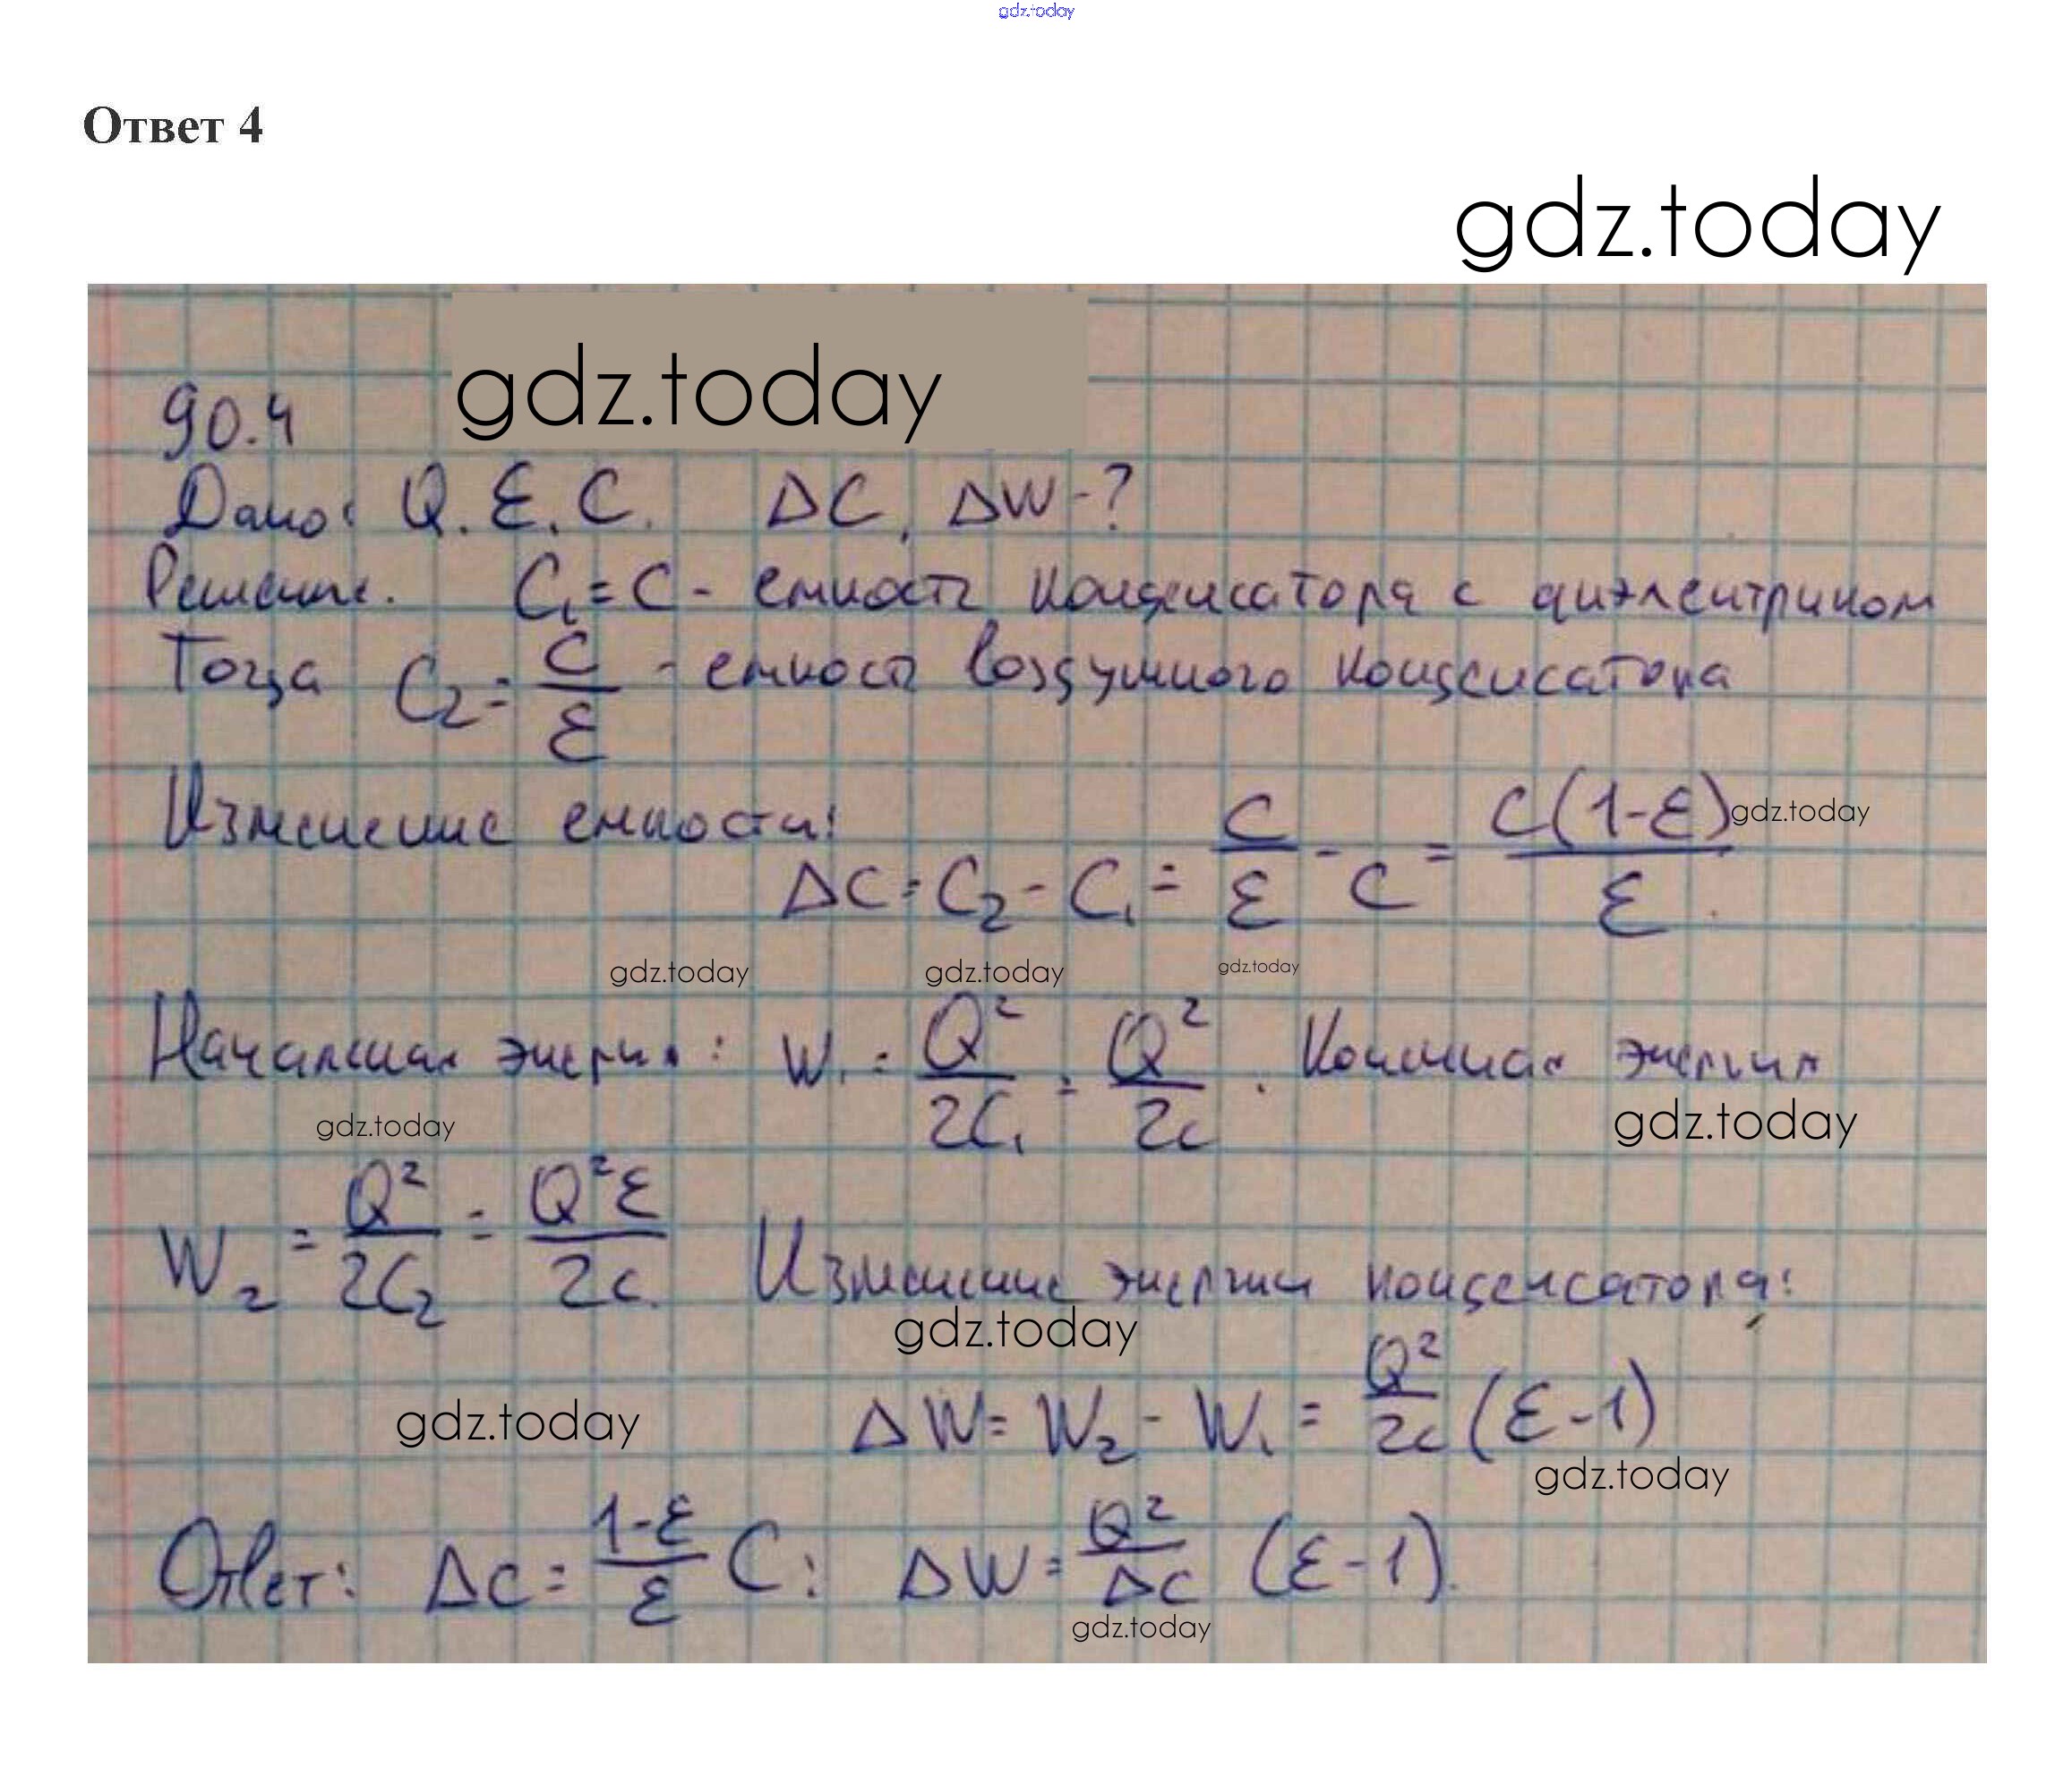 gdz.today
Ответ 4
gdz.today
gdz.today
90.4
Дано: Q. ε. C. ΔC, ΔW-?
Решение. C₁ = C - емкость конденсатора с диэлектриком
Тогда C₂ = C/ε - емкость воздушного конденсатора
Изменение емкости:
ΔC = C₂ - C₁ = C/ε - C = C(1-ε)/ε.
gdz.today
gdz.today gdz.today gdz.today
Начальная энергия: W₁ = Q²/2C₁ = Q²/2c. Конечная энергия
gdz.today gdz.today
W₂ = Q²/2C₂ = Q²ε/2c. Изменение энергии конденсатора:
gdz.today
gdz.today
ΔW = W₂ - W₁ = Q²/2c (ε-1)
gdz.today
Ответ: ΔC = 1-ε/ε C; ΔW = Q²/ΔC (ε-1).
gdz.today